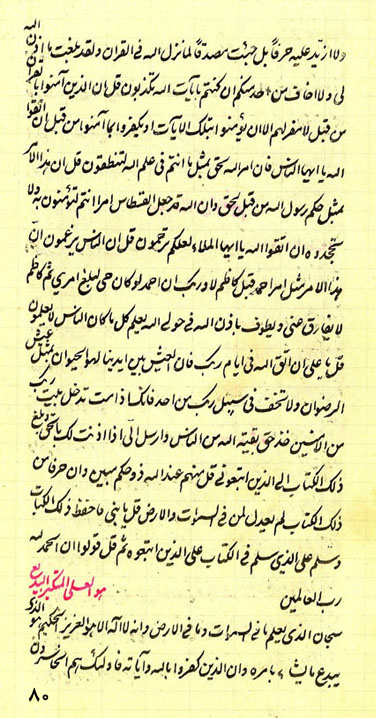 ولا ازيد عليه حرفا بل جئت مصدقا لما نزل الله في القران ولقد بلغت ما اذن الله
لي ولا اخاف من احد منكم ان كنتم بايات الله تكذبون قل ان الذين آمنوا بالقران
من قبل لا مفر لهم الا ان يؤمنوا بتلك الايات او يكفروا بما آمنوا من قبل ان اتقوا
الله يا ايها الناس فان امر الله لحق بمثل ما انتم في علم الله لتنطقون قل ان هذا الامر
بمثل حكم رسول الله من قبل لحق وان الله قد جعل القسطاس امرا انتم لتؤمنون به ولا
ان اتقوا الله يا ايها الملاء لعلكم ترحمون قل ان الناس يزعمون ان
هذا الامر مثل امر احمد قبل كاظم لا وربك ان احمد لو كان حي ليبلغ امري ثم كاظم
لا يفارق عني ويطوف باذن الله في حولي الله يعلم كل ما كان الناس لا يعلمون
قل يا علي ان اتق الله في ايام ربك فان لعيش بين ايدينا لهو الحيوان بمثل عيش
الرضوان ولا تخف في سبيل ربك من احد فانك اذا مت تدخل بيت ربك
من الآمنين فخذ حق بقية الله من الناس وارسل الي اذا اذنت لك بالحق وبلغ
ذلك الكتاب الى الذين اتبعوني قل منهم عند الله ذو حكم مبين وان حرفا من
ذلك الكتاب لم يعدل لمن في السموات والارض قل يا بني فاحفظ ذلك الكتاب
وسلم على الذي سلم في الكتاب على الذين اتبعوه ثم قل قولوا ان الحمد لله
رب العالمين
هو العلي المتكبر البديع
سبحان الذي يعلم ما في السموات وما في الارض وانه لا اله الا هو العزيز الحكيم هو الذي
يبدع ما يشاء بامره وان الذين كفروا بالله وآياته فاولئك هم الخاسرون
٨٠